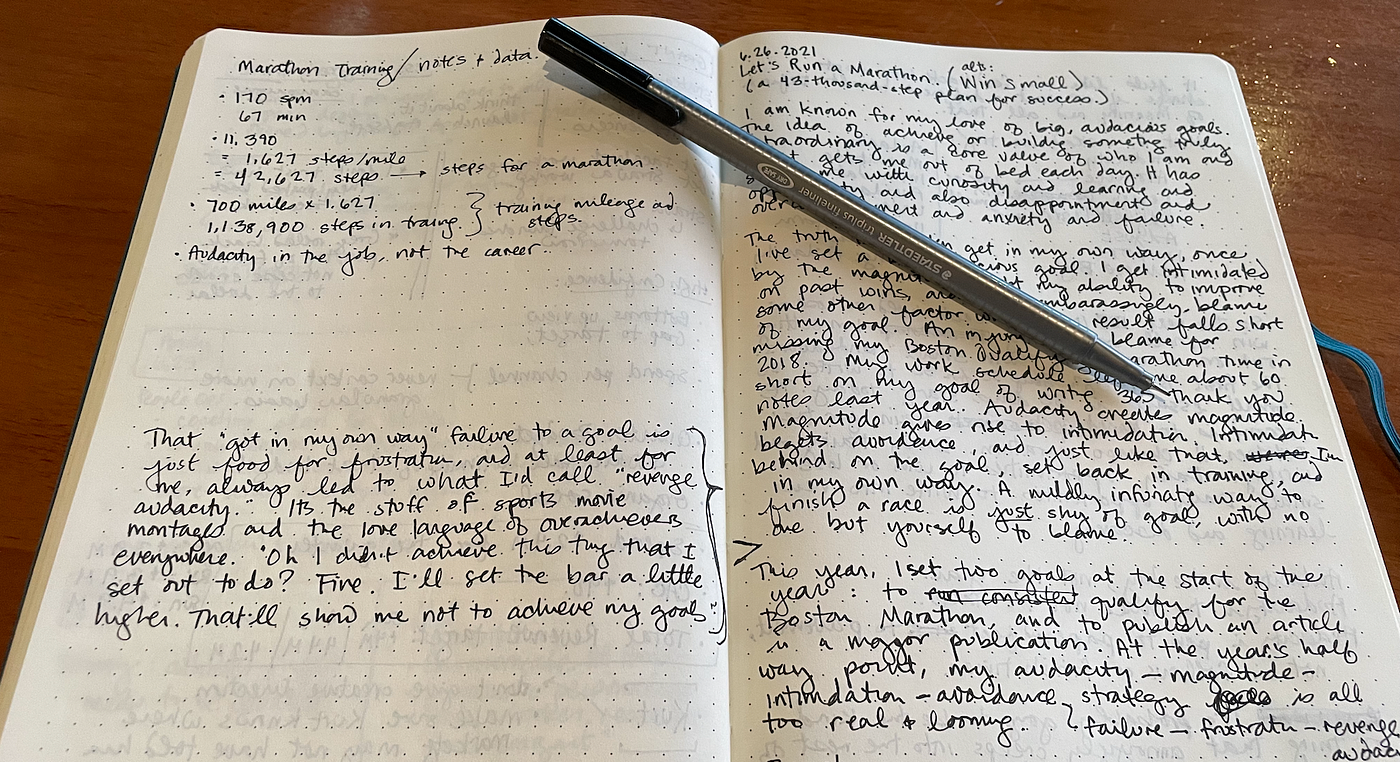 Marathon Training / notes + data.
• 170 spm
67 min
• 11,390
= 1,627 steps/mile
= 42,627 steps → steps for a marathon
• 700 miles x 1.627
1,138,900 steps in traing. } training mileage ad steps.
• Audacity in the job, not the career
That "got in my own way" failure to a goal is
just food for frustratin, and at least for
me, always led to what I'd call "revenge
audacity." Its the stuff of sports movie
montages and the love language of overachievers
everywhere. "Oh I didn't achieve this ting that I
set out to do? Fine. I'll set the bar a little
higher. That'll show me not to achieve my goals."
6.26.2021
Let's Run a Marathon. (alt: Win Small)
(a 43-thousand-step plan for success.)
I am known for my love of big, audacious goals.
The idea of achieve or building someting truly
traordinary is a core value of who I am and
gets me out of bed each day. It has
me with curiosity and learning and
ty and also disappointment and
ment and anxiety and failure.
The truth get in my own way, once
I've set a cious goal. I get intimidated
by the magni my ability to improve
on past wins, and embarassingly, blame
some other factor result falls short
of my goal. An injury blame for
missing my Boston Qualify marathon time in
2018. My work schedule me about 60
short on my goal of writing 365 thank you
notes last year. Audacity creates magnitude.
magnitude gives rise to intimidation. Intimidatn
begets avoidence, and just like that, I'm
behind on the goal, set back in training, and
in my own way. A mildly infuriatg way to
finish a race is just shy of goal, with no
one but yourself to blame.
> This year, I set two goals at the start of the
year: to run consistent qualify for the
Boston Marathon, and to publish an article
in a major publication. At the year's half
way point, my audacity – magnitude –
intimidation – avoidance strategy is all
too real & looming. } failure – frustratn – revenge
audac
STAEDTLER triplus fineliner
DRY SAFE